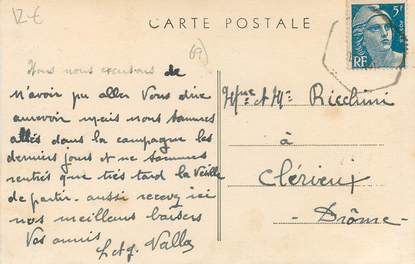 12€
CARTE POSTALE
5F
POSTES
RF
69
Nous nous excusons de
n'avoir pu aller Vous dire
aurevoir mais nous sommes
allés dans la campagne les
derniers jours et ne sommes
rentrés que très tard la Veille
de partir. aussi recevez ici
nos meilleurs baisers
Vos amis
Mme et Mr Ricchini
à
Clérieux
- Drôme -